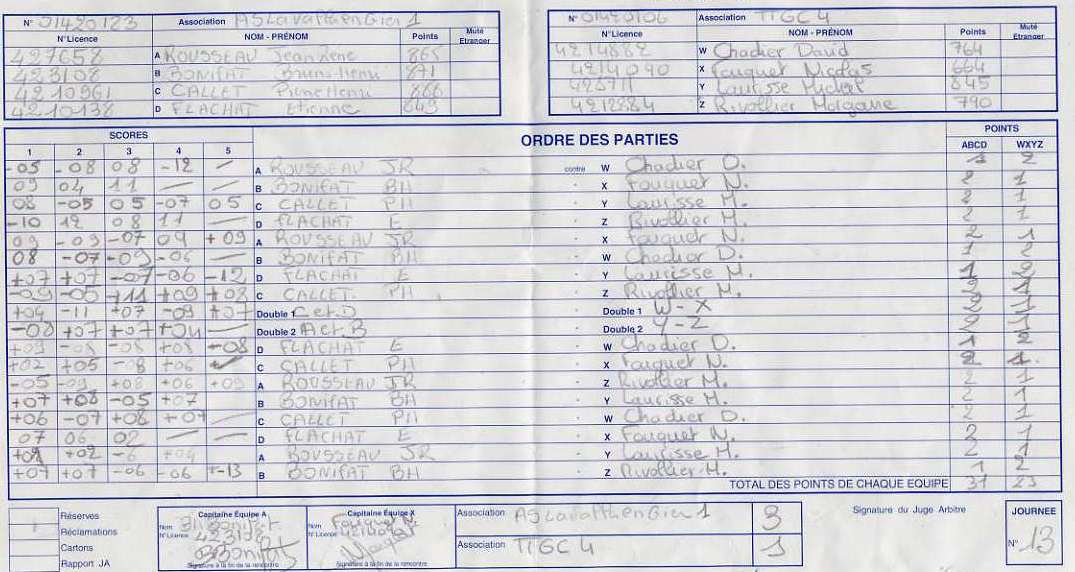 N° 01420123 Association ASLavalthenGier 1
N°Licence NOM - PRÉNOM Points Muté Etranger
427658 A ROUSSEAU Jean Rene 865
423108 B BONIFAT Bruno Henri 871
4210961 C CALLET Pierre Henri 866
4210138 D FLACHAT Etienne 849
N° 01420106 Association TTGC 4
N°Licence NOM - PRÉNOM Points Muté Etranger
4214882 W Chadier David 764
4214090 X Fouquet Nicolas 664
Y Laurisse Michel 845
4212884 Z Rivollier Morgane 790
SCORES ORDRE DES PARTIES POINTS
1 2 3 4 5 ABCD WXYZ
-05 -08 08 -12 — A ROUSSEAU JR contre W Chadier D. 1 2
09 04 11 — — B BONIFAT BH - X Fouquet N. 2 1
08 -05 05 -07 05 C CALLET PH - Y Laurisse M. 2 1
-10 12 08 11 — D FLACHAT E - Z Rivollier M. 2 1
09 -09 -07 09 +09 A ROUSSEAU JR - X Fouquet N. 2 1
08 -07 -09 -06 — B BONIFAT BH - W Chadier D. 1 2
+07 +07 -07 -06 -12 D FLACHAT E - Y Laurisse M. 1 2
-09 -05 +11 +09 +08 C CALLET PH - Z Rivollier M. 2 1
+04 -11 +07 -09 +07 Double 1 C et D - Double 1 W-X 2 1
-08 +07 +07 +04 — Double 2 A et B - Double 2 Y-Z 2 1
+09 -08 -08 +08 -08 D FLACHAT E - W Chadier D. 1 2
+02 +05 -08 +06 C CALLET PH - X Fouquet N. 2 1
-05 -09 +08 +06 +09 A ROUSSEAU JR - Z Rivollier M. 2 1
+07 +08 -05 +07 B BONIFAT BH - Y Laurisse M. 2 1
+06 -07 +08 +07 — C CALLET PH - W Chadier D. 2 1
07 06 02 — — D FLACHAT E - X Fouquet N. 2 1
+02 -6 +04 A ROUSSEAU JR - Y Laurisse M. 2 1
+07 +07 -06 -06 -13 B BONIFAT BH - Z Rivollier M. 1 2
TOTAL DES POINTS DE CHAQUE EQUIPE 31 23
Réserves
Réclamations
Cartons
Rapport JA
Capitaine Équipe A
Nom BH Bonifat
N°Licence 423108
Signature à la fin de la rencontre
Capitaine Équipe X
Nom Fouquet N.
N°Licence 4214090
Signature à la fin de la rencontre
Association ASLavalthenGier 1 3
Association TTGC 4 1
Signature du Juge Arbitre
JOURNEE
N° 13